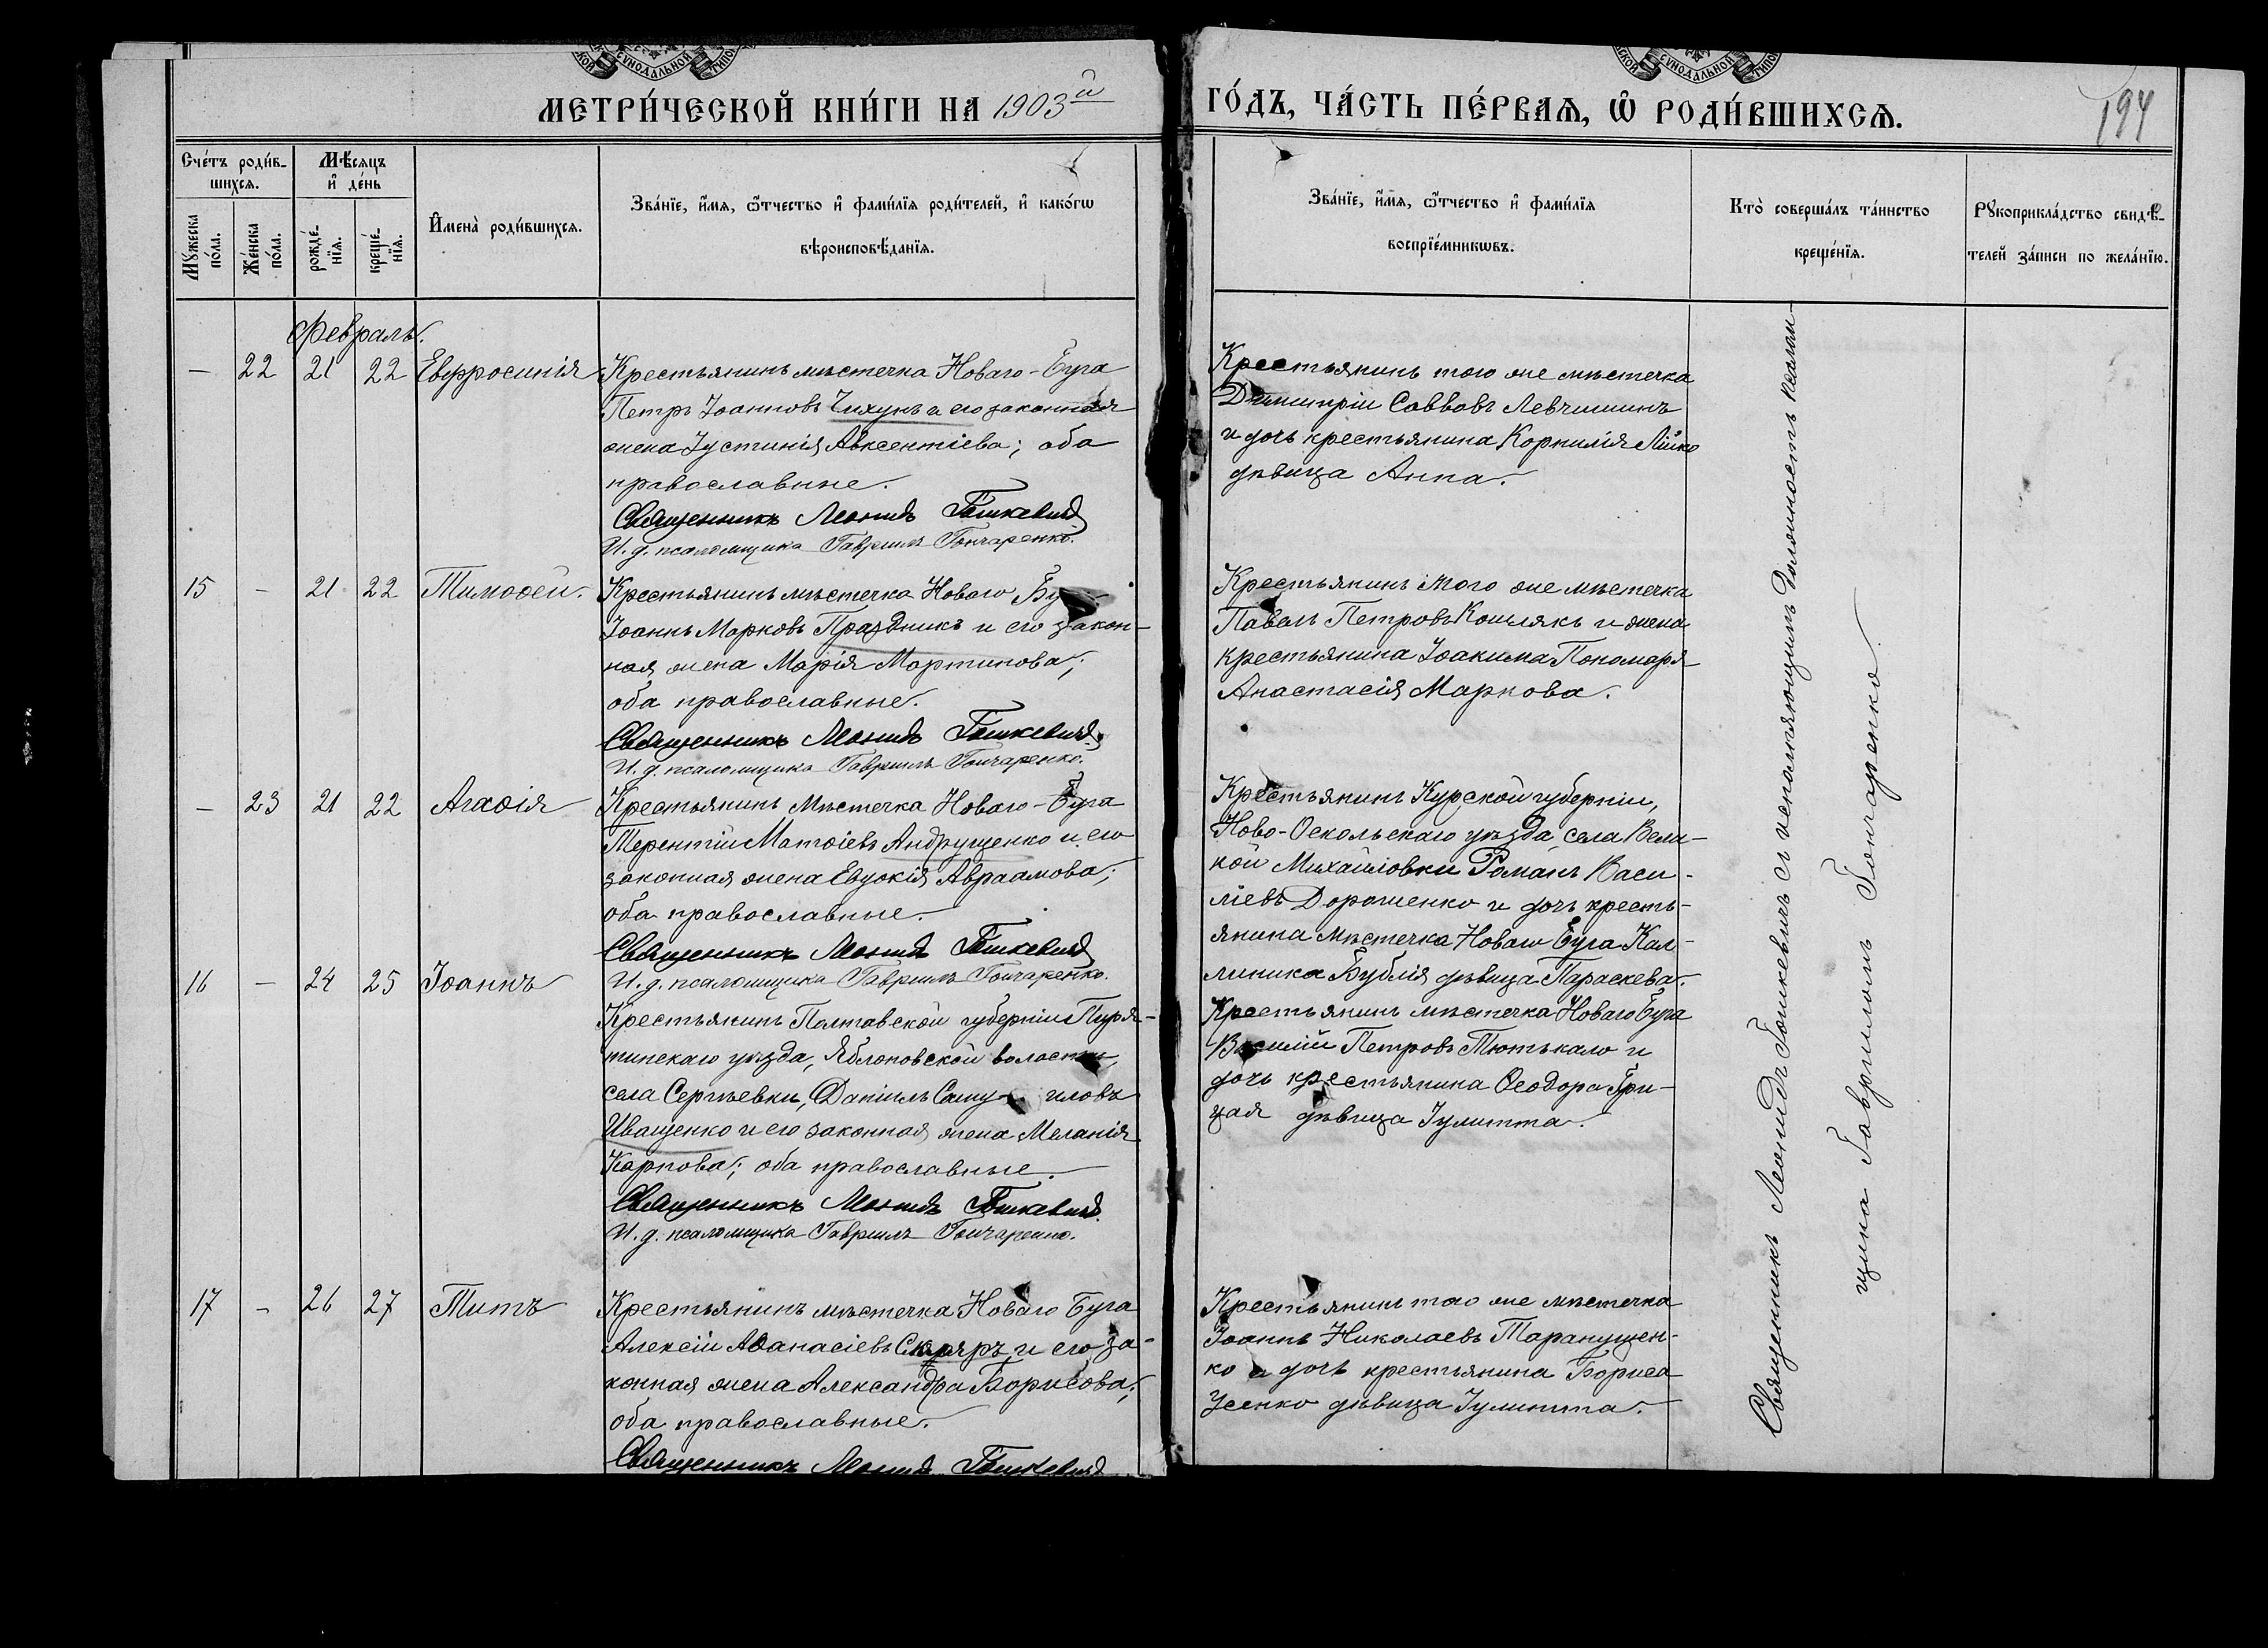 СѴНОДАЛЬНОЙ
СѴНОДАЛЬНОЙ
МЕТРИ́ЧЕСКОЙ КНИ́ГИ НА 1903й
ГО́ДЪ, ЧА́СТЬ ПЕ́РВАЯ, Ѿ РОДИ́ВШИХСѦ.
194
Сче́тъ роди́в-
шихсѧ.
Мѣ́сѧцъ
и҆ де́нь
Мꙋ́жеска
по́ла.
Же́нска
по́ла.
рожде́-
нїѧ.
креще́-
нїѧ.
И҆мена̀ роди́вшихсѧ.
Зва́нїе, и҆́мѧ, ѻ҆́тчество и҆ фами́лїѧ роди́телей, и҆ како́гѡ
вѣроисповѣ́данїѧ.
Зва́нїе, и҆́мѧ, ѻ҆́тчество и҆ фами́лїѧ
воспрїе́мникѡвъ.
Кто̀ соверша́лъ та́инство
креще́нїѧ.
Рꙋкоприкла́дство свидѣ́-
телей за́писи по жела́нїю.
Февраль.
— 22 21 22 Евфросинія
Крестьянинъ мѣстечка Новаго-Буга
Петръ Іоанновъ Чихунъ и его законная
жена Іустинія Авксентіева; оба
православные.
Священникъ Леонидъ Гошкевичъ
И. д. псаломщика Гавриилъ Гончаренко.
Крестьянинъ того же мѣстечка
Димитрій Савововъ Левчишинъ
и дочь крестьянина Корнилія Лійко
дѣвица Анна.
15 — 21 22 Тимоѳей.
Крестьянинъ мѣстечка Новаго Буга
Іоаннъ Марковъ Праздникъ и его закон-
ная жена Марія Мартинова;
оба православные.
Священникъ Леонидъ Гошкевичъ
И. д. псаломщика Гавриилъ Гончаренко.
Крестьянинъ того же мѣстечка
Павелъ Петровъ Кошлякъ и жена
крестьянина Іоакима Пономаря
Анастасія Маркова.
— 23 21 22 Агаѳія
Крестьянинъ мѣстечка Новаго-Буга
Терентій Матѳіевъ Андрущенко и его
законная жена Евдокія Авраамова;
оба православные.
Священникъ Леонидъ Гошкевичъ
И. д. псаломщика Гавриилъ Гончаренко.
Крестьянинъ Курской губерніи,
Ново-Оскольскаго уѣзда, села Вели-
кой Михайловки Романъ Васи-
ліевъ Дорошенко и дочь кресть-
янина мѣстечка Новаго Буга Кал-
линика Бублія дѣвица Параскева.
16 — 24 25 Іоаннъ
Крестьянинъ Полтавской губерніи Пиря-
тинскаго уѣзда, Яблоновской волости,
села Сергѣевки, Даніилъ Саму- иловъ
Иващенко и его законная жена Меланія
Карпова; оба православные.
Священникъ Леонидъ Гошкевичъ.
И. д. псаломщика Гавриилъ Гончаренко.
Крестьянинъ мѣстечка Новаго Буга
Василій Петровъ Тютькало и
дочь крестьянина Ѳеодора Гри-
цая дѣвица Іулитта.
17 — 26 27 Титъ
Крестьянинъ мѣстечка Новаго Буга
Алексій Аѳанасіевъ Скляръ и его за-
конная жена Александра Борисова;
оба православные.
Священникъ Леонидъ Гошкевичъ
Крестьянинъ того же мѣстечка
Іоаннъ Николаевъ Таранущен-
ко и дочь крестьянина Бориса
Усенко дѣвица Іулитта.
Священникъ Леонидъ Гошкевичъ съ исполняющимъ должность псалом-
щика Гавриломъ Гончаренко.